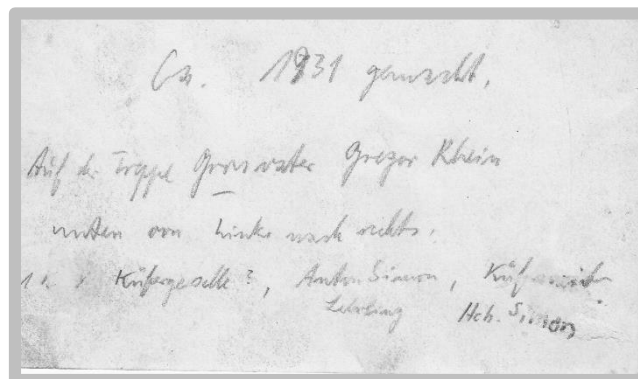 Ca. 1931 gemacht.
Auf der Treppe Grossvater Gregor Rhein
unten von links nach rechts.
Küfergeselle?, Anton Simon, Küfermeister
Lehrling Hch. Simon